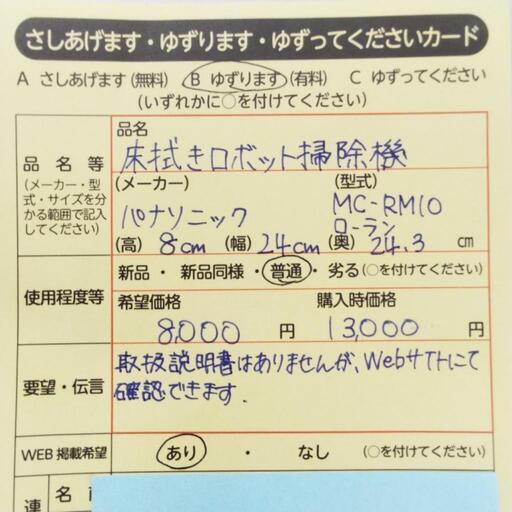 さしあげます・ゆずります・ゆずってくださいカード
A さしあげます(無料) B ゆずります(有料) C ゆずってください
(いずれかに○を付けてください)
品名等
(メーカー・型式・サイズを分かる範囲で記入してください)
品名
床拭きロボット掃除機
(メーカー) (型式)
パナソニック MC-RM10
ローラン
(高) 8cm (幅) 24cm (奥) 24.3 cm
使用程度等
新品・新品同様・普通・劣る(○を付けてください)
希望価格 購入時価格
8,000 円 13,000 円
要望・伝言
取扱説明書はありませんが、Webサイトにて
確認できます.
WEB掲載希望 あり ・ なし (○を付けてください)
連 名